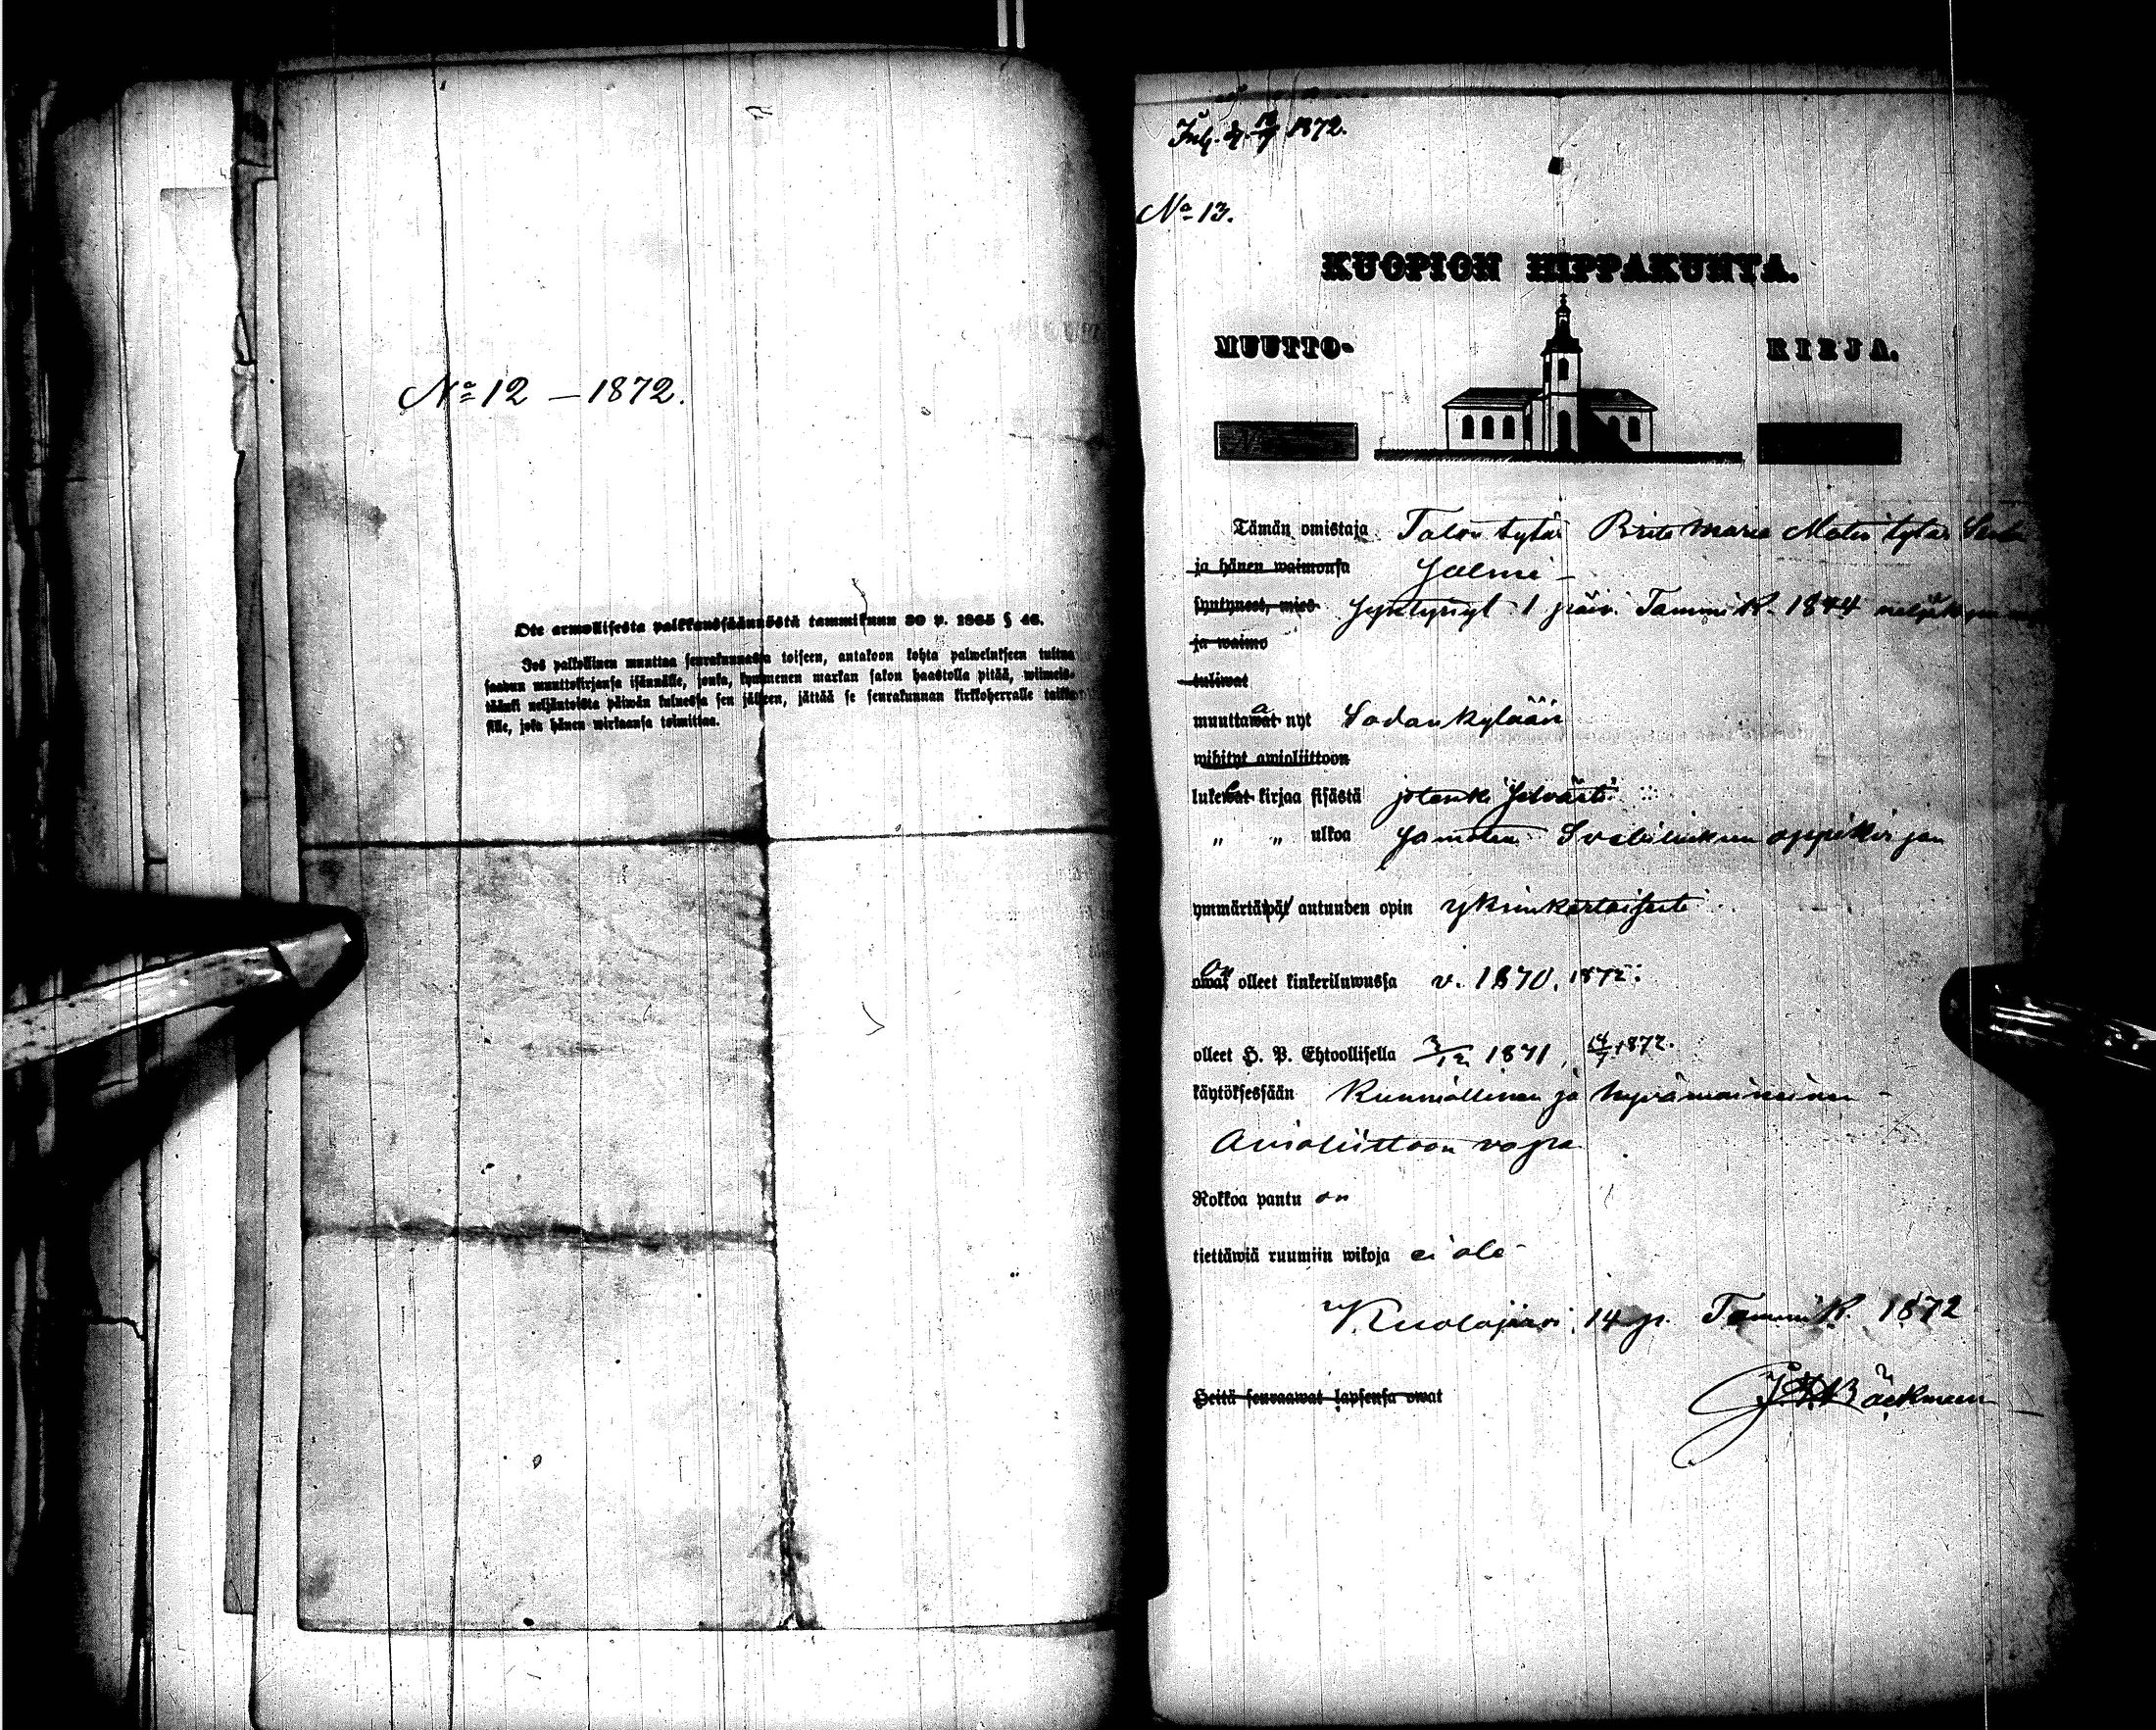 No 12 – 1872.
Ote armollisesta palkkaussäännöstä tammikuun 30 p. 1865 § 46.
Jos palkollinen muuttaa seurakunnasta toiseen, antakoon kohta palwelukseen tultua
saadun muuttokirjansa isännälle, jonka, kymmenen markan sakon haastolla pitää, wiimeis-
täänki neljäntoista päiwän kuluessa sen jälkeen, jättää se seurakunnan kirkkoherralle taikka
sille, joka hänen wirkaansa toimittaa.
1872.
No 13.
KUOPION HIPPAKUNTA.
MUUTTO-
KIRJA.
Tämän omistaja Talon tytär Brita Maria Matin tytär
ja hänen waimonsa
syntyneet, mies Syntynyt 1 päiv. Tammik. 1844
ja waimo
tuliwat
muuttawat a nyt Sodankylään
wihityt awioliittoon
lukewat kirjaa sisästä jotenki selvästi
„ „ ulkoa samoten Svebiliuksen oppikirjan
ymmärtäwät autuuden opin yksinkertaisesti
owat on olleet kinkeriluwussa v. 1870, 1872.
olleet H. P. Ehtoollisella 3/12 1871, 1872.
käytöksessään Kunniallinen ja hyvämaineinen –
Avioliittoon vapa
Rokkoa pantu on
tiettäwiä ruumiin wikoja ei ole –
Kuolajärvi 14 p. Tammik. 1872
Heitä seuraawat lapsensa owat
Bäckman